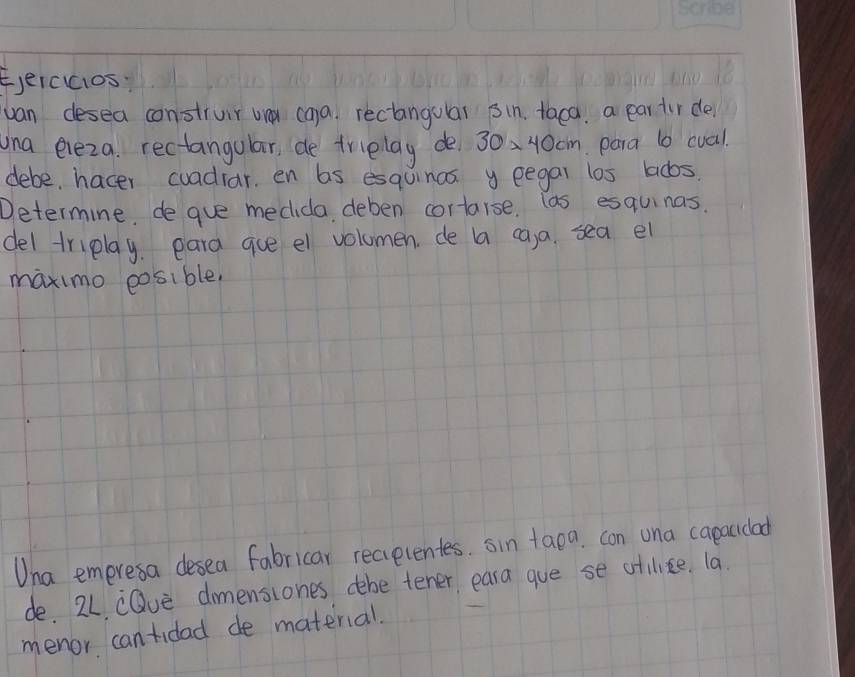 Scribe
Ejercicios:
Juan desea construir una caja rectangular sin taca. a partir de
una pieza rectangular, de triplay de 30x40cm para lo cual.
debe. hacer cuadrar. en las esquinas y pegar los lados.
Determine. de que medida. deben cortarse. las esquinas.
del triplay. para que el volumen. de la caja. sea el
máximo posible.
Una empresa desea fabricar recipientes. sin tapa. con una capacidad
de. 2L. ¿Qué dimensiones debe tener. para que se utilize. la.
menor. cantidad de material.